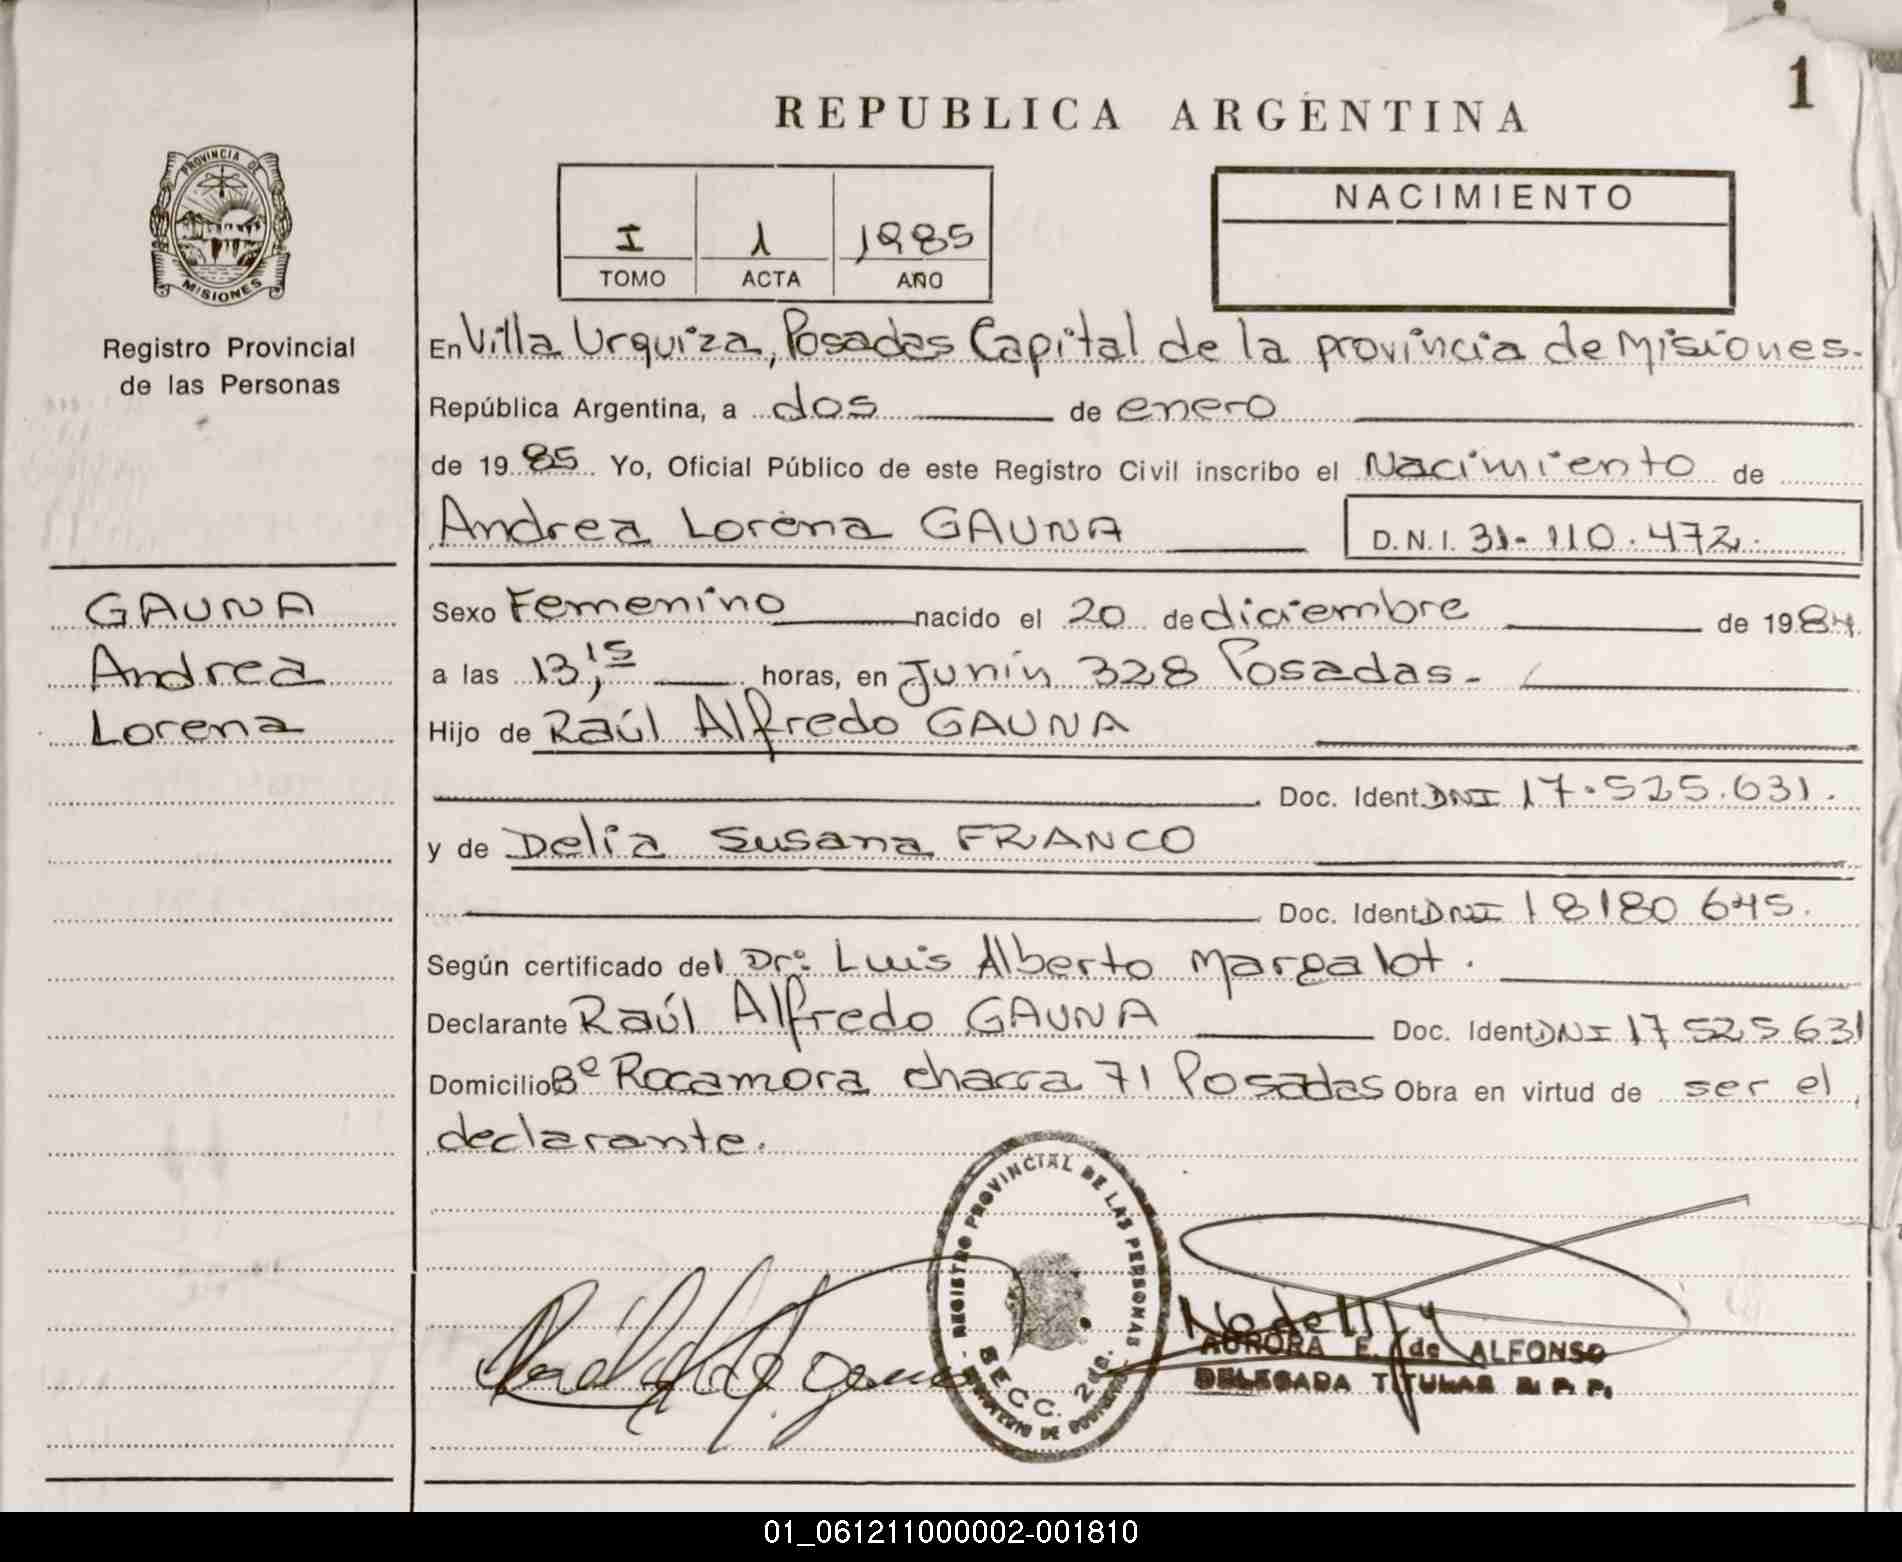 1
REPUBLICA ARGENTINA
PROVINCIA DE
MISIONES
Registro Provincial
de las Personas
I 1 1985
TOMO ACTA AÑO
NACIMIENTO
En Villa Urquiza, Posadas Capital de la provincia de Misiones.
República Argentina, a dos de enero
de 1985 Yo, Oficial Público de este Registro Civil inscribo el Nacimiento de
Andrea Lorena GAUNA D.N.I. 31-110.472.
GAUNA
Andrea
Lorena
Sexo Femenino nacido el 20 de diciembre de 1984.
a las 13,15 horas, en Junín 328 Posadas.
Hijo de Raúl Alfredo GAUNA
Doc. Ident. DNI 17.525.631.
y de Delia Susana FRANCO
Doc. Ident. DNI 18180 645.
Según certificado del Dr: Luis Alberto Margalot.
Declarante Raúl Alfredo GAUNA Doc. Ident. DNI 17 525 631
Domicilio Bº Rocamora chacra 71 Posadas Obra en virtud de ser el
declarante.
REGISTRO PROVINCIAL DE LAS PERSONAS
SECC. 2da.
AURORA E. de ALFONSO
DELEGADA TITULAR R. P. P.
01_061211000002-001810